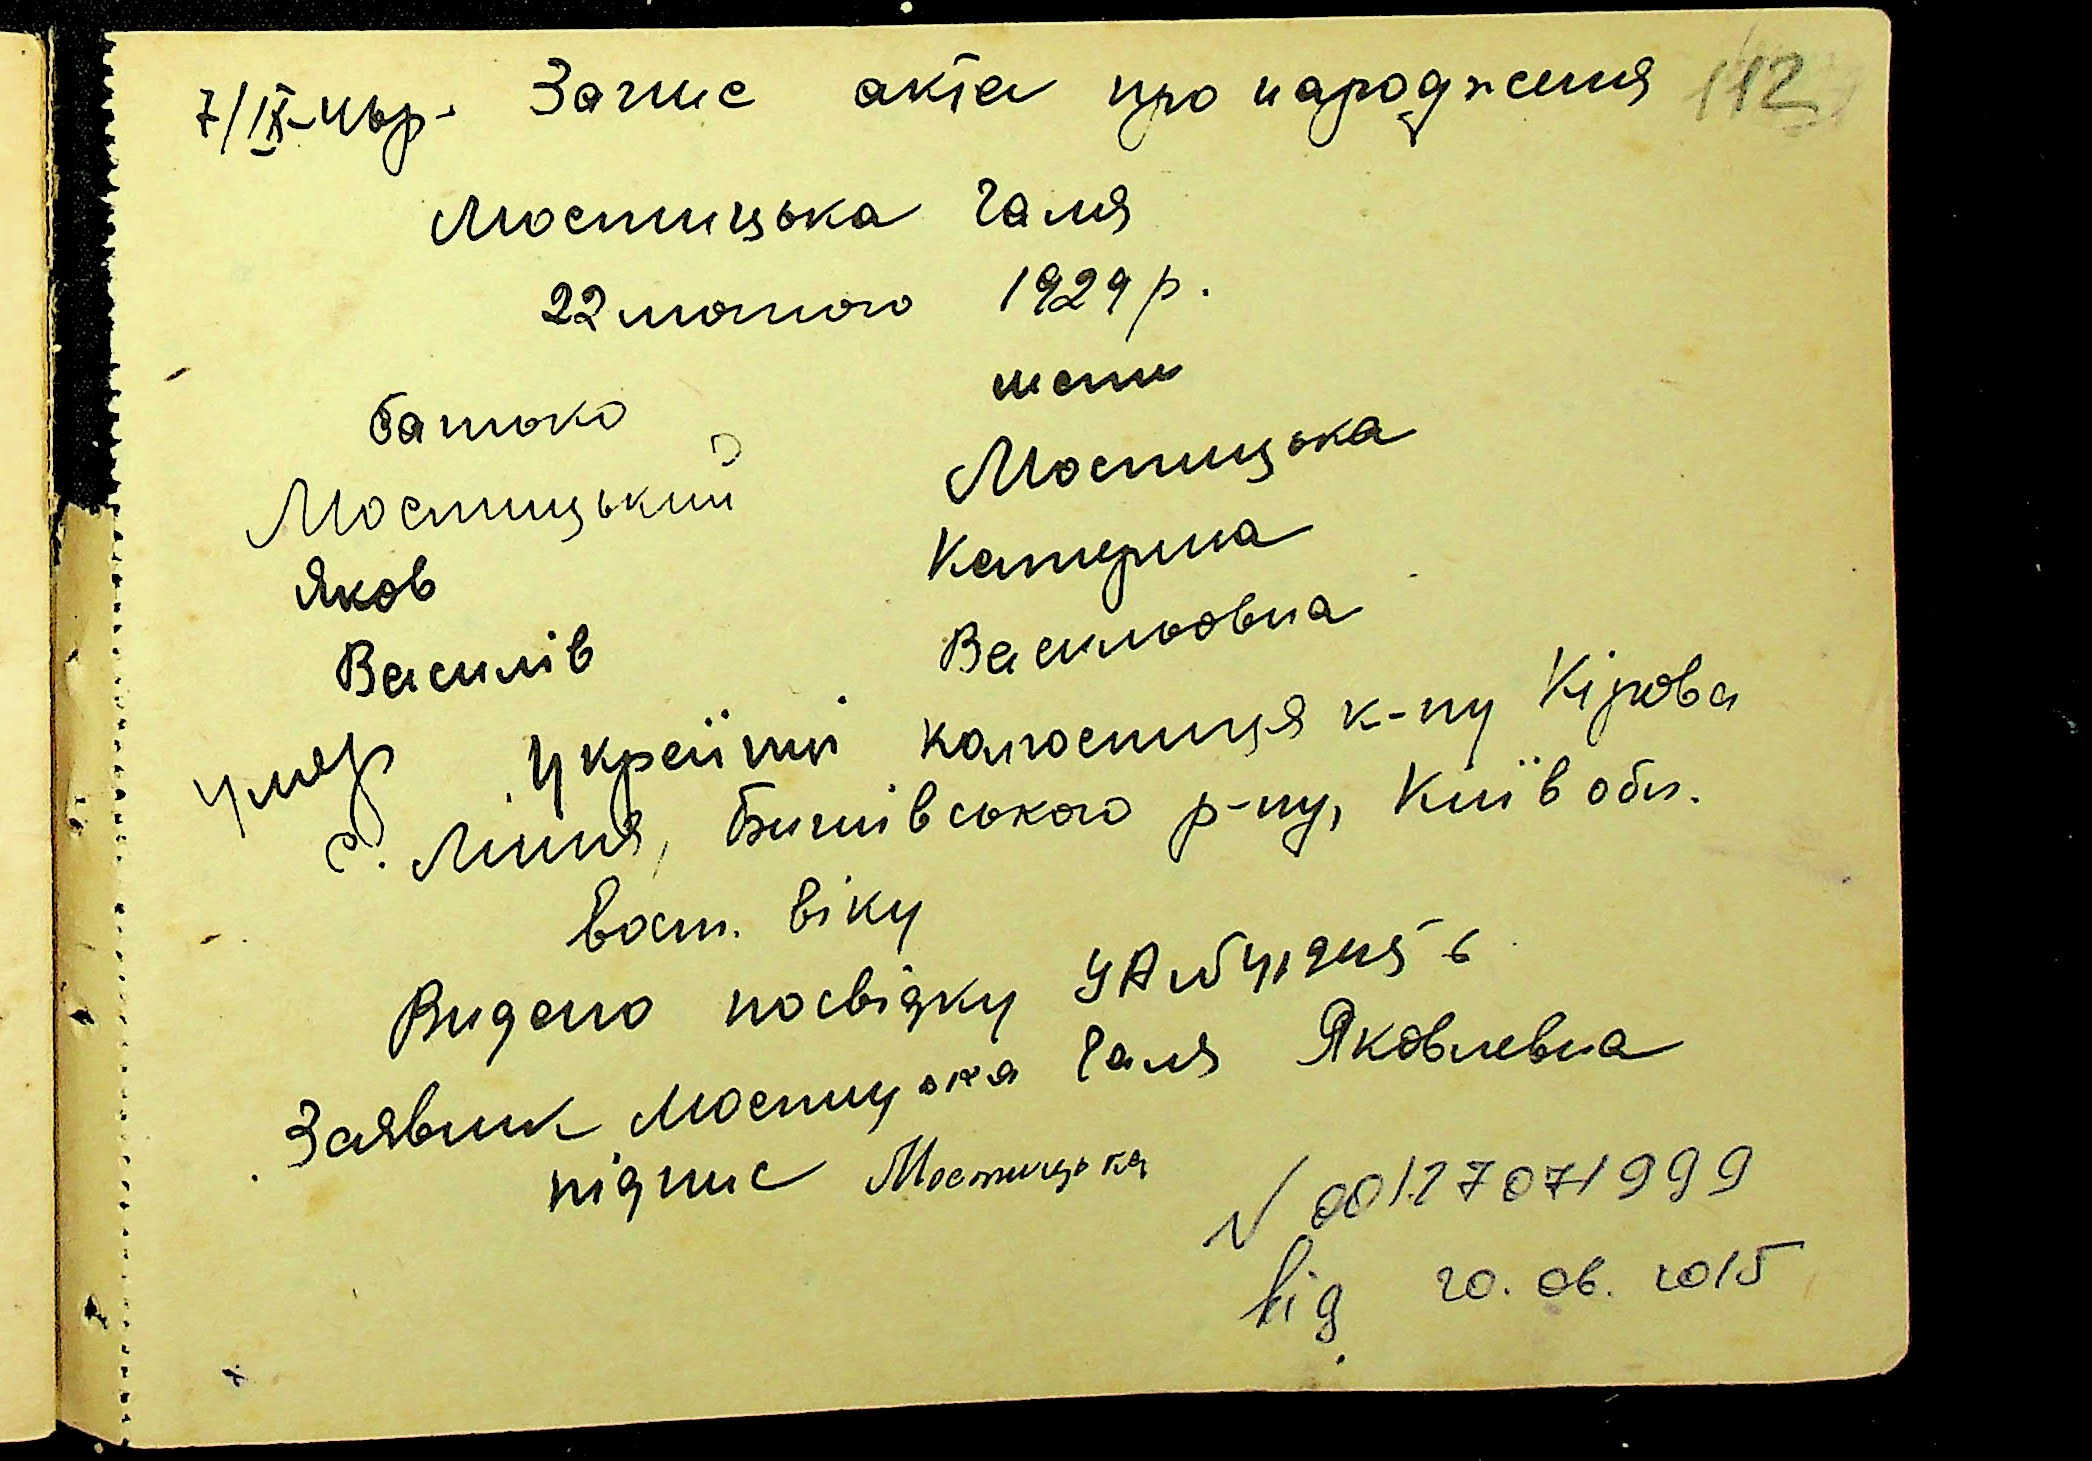 7/IX-44р. Запис акта про народження 112
Мостицька Галя
22 лютого 1929 р.
батько мати
Мостицький Мостицька
Яков Катерина
Василів Васильовна
умер Українці колгоспниця к-пу Кірова
с. Липня, Бишівського р-ну, Київ обл.
вост. віку
Видано посвідку УА
Заявник Мостицька Галя Яковлевна
підпис Мостицька
N 00127071999
від 20.06.2015